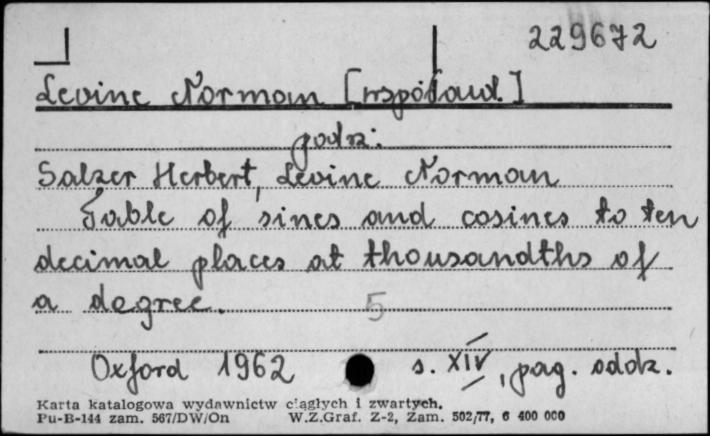 229672
Levine Norman [współaut.]
podz:
Salzer Herbert, Levine Norman
Table of sines and cosines to ten
decimal places at thousandths of
a degree.
5
Oxford 1962 s. XIV, pag. oddz.
Karta katalogowa wydawnictw ciągłych i zwartych.
Pu-B-144 zam. 567/DW/On W.Z.Graf. Z-2, Zam. 502/77, 6 400 000